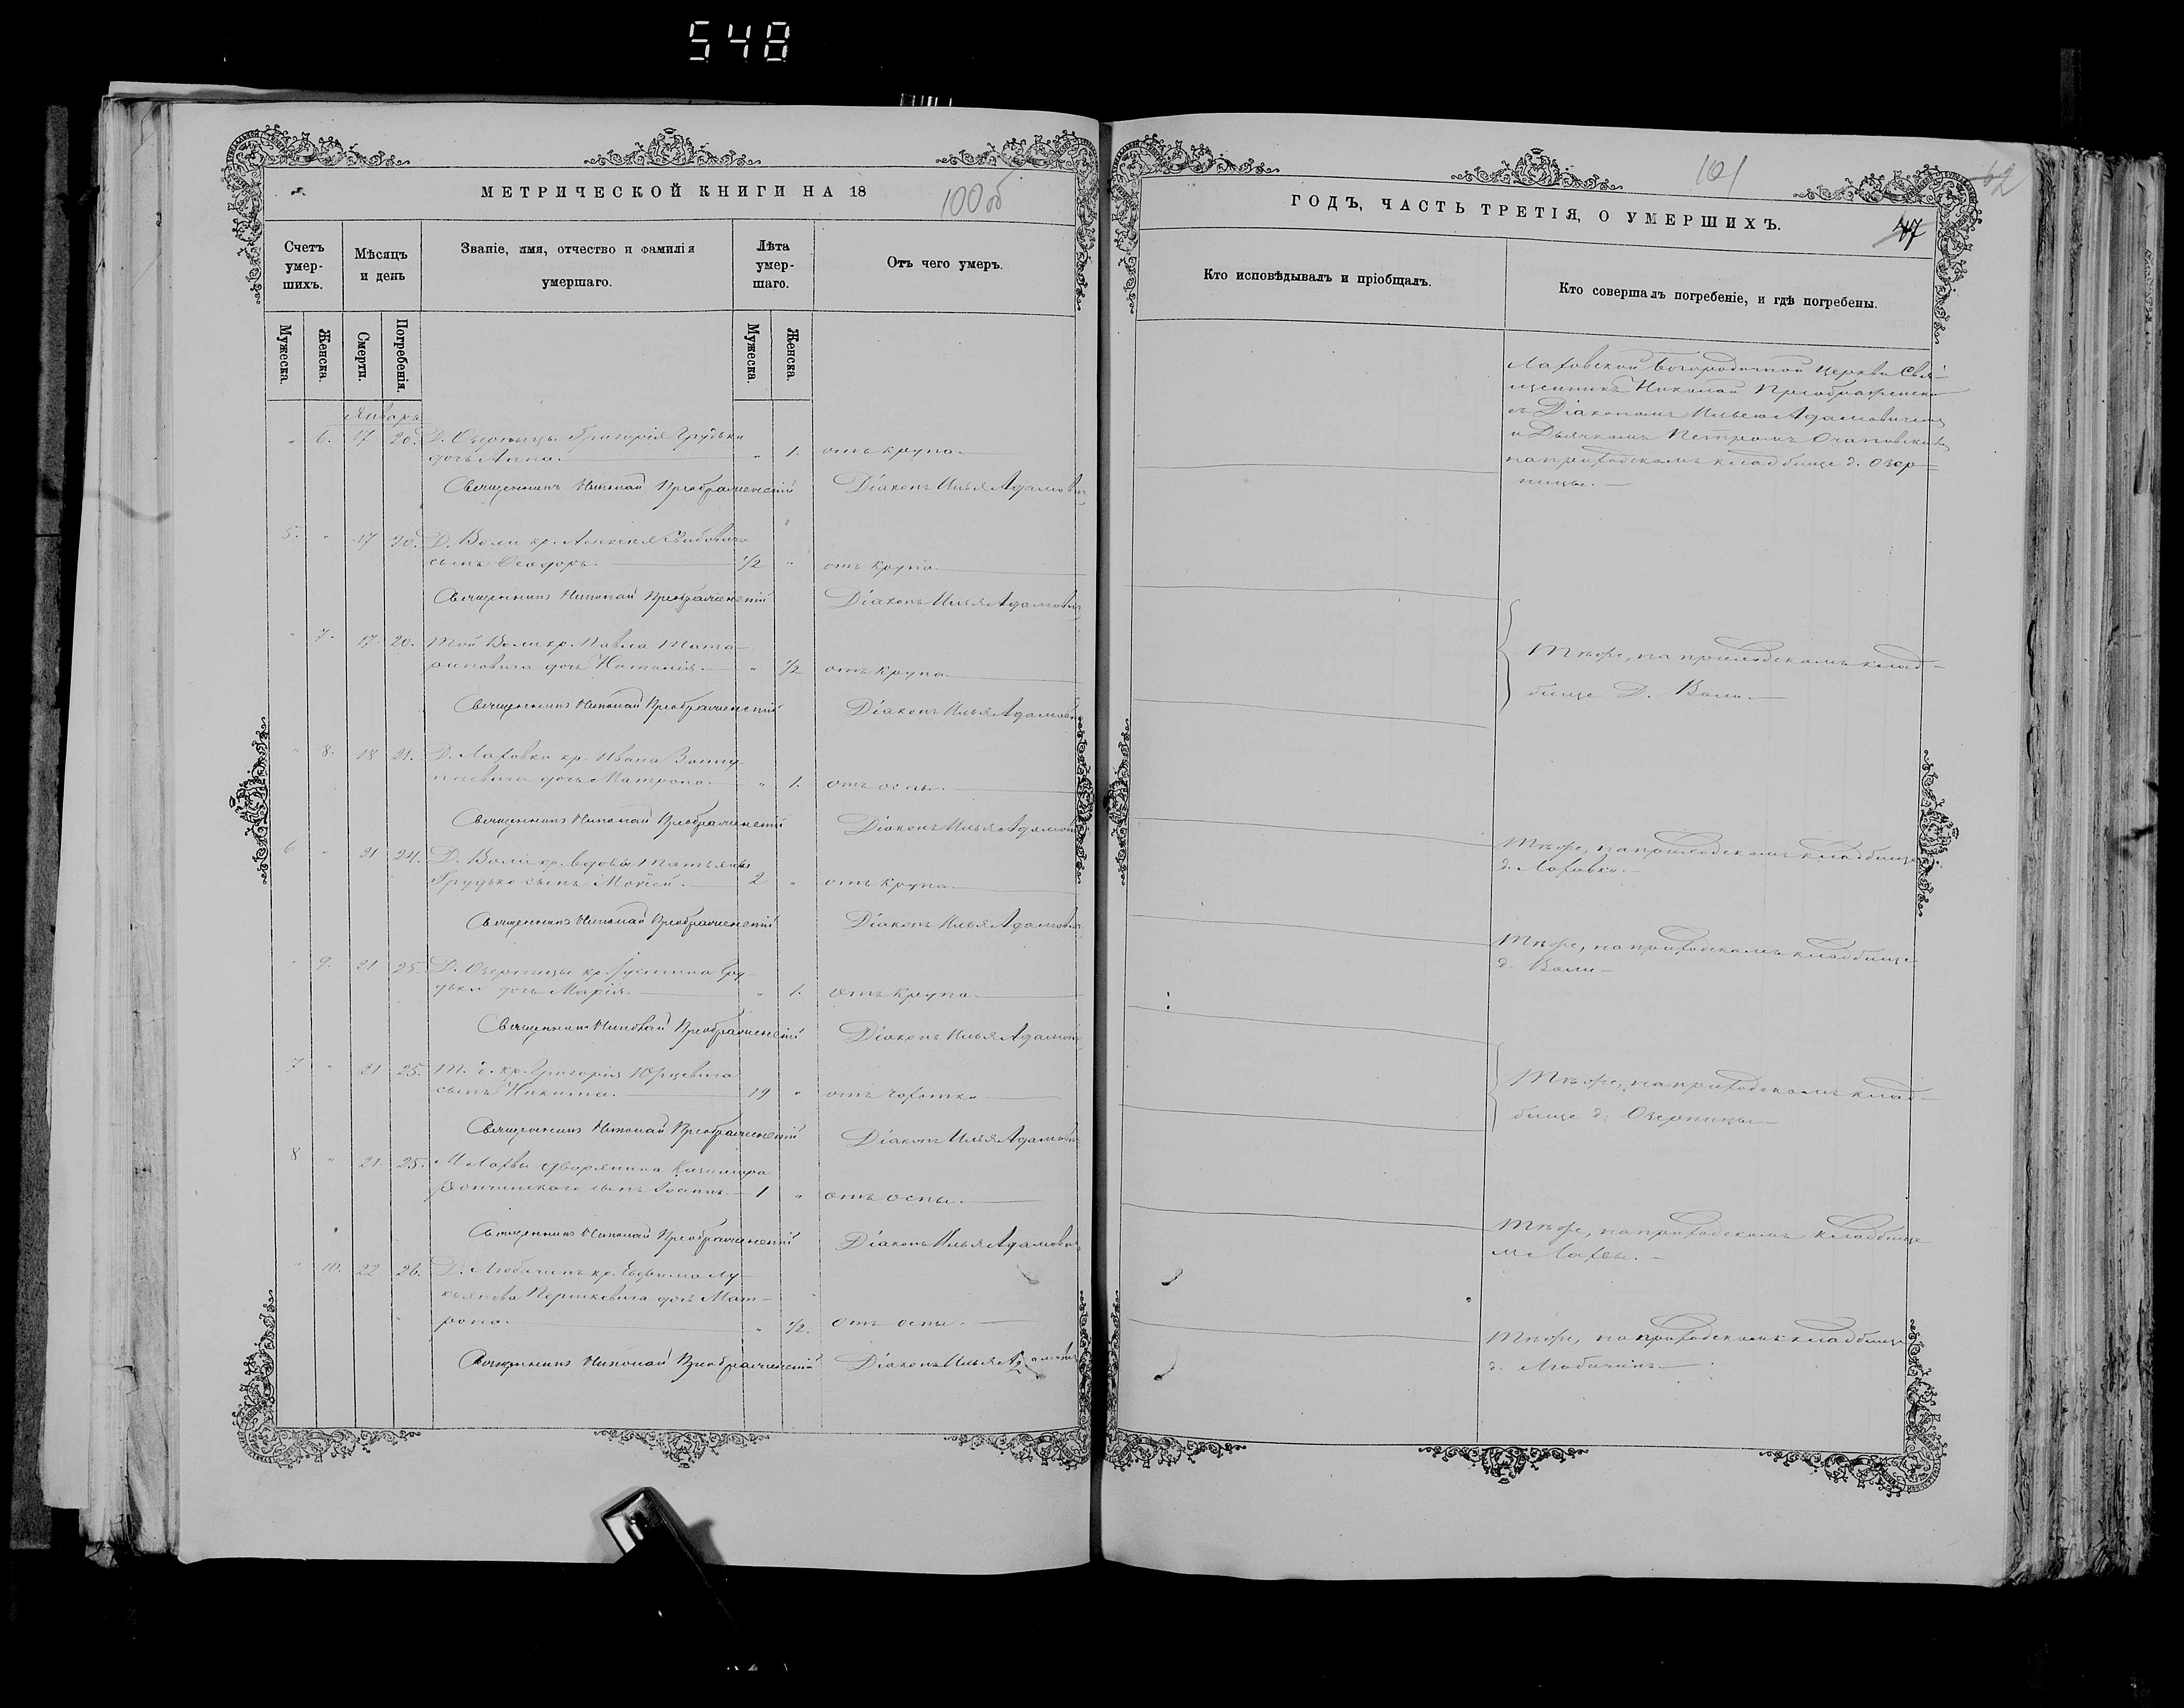 548
МЕТРИЧЕСКОЙ КНИГИ НА 18
100 об
Счетъ умер-шихъ.
Мѣсяцъ и день
Званіе, имя, отчество и фамилія умершаго.
Лѣта умер-шаго.
Отъ чего умеръ.
Мужеска.
Женска.
Смерти.
Погребенія.
Мужеска.
Женска.
Январь
" 6. 17 20. Д. Озерницы Григорія Грудьки
дочь Анна. " 1. отъ крупа.
Священникъ Николай Преображенскій Діаконъ Илья Адамович
5. " 17 20. Д. Воли кр. Алексея
сынъ Ѳеодоръ. 1/2 " отъ крупа
Священникъ Николай Преображенскій Діаконъ Илья Адамович
" 7. 17 20. Той Воли кр. Павла Тата-
риновича дочь Наталія. " 1/2 отъ крупа
Священникъ Николай Преображенскій Діаконъ Илья Адамович
" 8. 18 21. Д. Лаховки кр. Ивана
дочь Матрона. " 1. отъ оспы.
Священникъ Николай Преображенскій Діаконъ Илья Адамович
6 " 21 24. Д. Воли кр. вдовы Татьяны
Грудько сынъ Моисей. 2 " отъ крупа
Священникъ Николай Преображенскій Діаконъ Илья Адамович
" 9. 21 25. Д. Озерницы кр. Іустина Гру-
дьки дочь Марія. " 1. отъ крупа
Священникъ Николай Преображенскій Діаконъ Илья Адамович
7 " 21 25. Т. д. кр. Григорія Юрцевича
сынъ Никита. 19 " отъ чахотки
Священникъ Николай Преображенскій Діаконъ Илья Адамович
8 " 21. 25. М. Лахвы дворянина Казимира
сынъ Іоаннъ 1 " отъ оспы.
Священникъ Николай Преображенскій Діаконъ Илья Адамович
" 10. 22 26. Д. Любачинъ кр. Евфима Лу-
кьянова дочь Мат-
рона. " 1/2. отъ оспы.
Священникъ Николай Преображенскій Діаконъ Илья Адамович
101
62
ГОДЪ, ЧАСТЬ ТРЕТІЯ, О УМЕРШИХЪ.
47
Кто исповѣдывалъ и пріобщалъ.
Кто совершалъ погребеніе, и гдѣ погребены.
Лаховской Богородичной Церкви Свя-
щенникъ Николай Преображенскій
съ Діакономъ Ильею Адамовичемъ
и Дьячкомъ Петромъ
на приходскомъ кладбище д. Озер-
ницы.
Тѣ же, на приходскомъ клад-
бище Д. Воли
Тѣ же, на приходскомъ кладбище
д. Лаховки.
Тѣ же, на приходскомъ кладбище
д. Воли
Тѣ же, на приходскомъ клад-
бище д. Озерницы
Тѣ же, на приходскомъ кладбище
м. Лахвы.
Тѣ же, на приходскомъ кладбище
д. Любачинъ